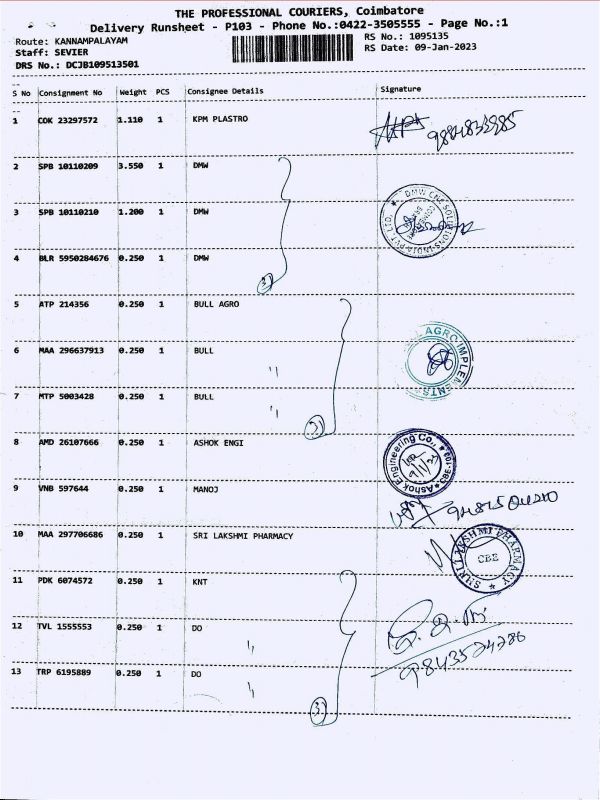 THE PROFESSIONAL COURIERS, Coimbatore
Delivery Runsheet - P103 - Phone No.:0422-3505555 - Page No.:1
Route: KANNAMPALAYAM
Staff: SEVIER
DRS No.: DCJB109513501
RS No.: 1095135
RS Date: 09-Jan-2023
S No Consignment No Weight PCS Consignee Details Signature
1 COK 23297572 1.110 1 KPM PLASTRO
2 SPB 10110209 3.550 1 DMW
3 SPB 10110210 1.200 1 DMW
DMW CNC SOLUTIONS INDIA PVT LTD.
4 BLR 5950284676 0.250 1 DMW
3
5 ATP 214356 0.250 1 BULL AGRO
6 MAA 296637913 0.250 1 BULL "
AGRO IMPLEMENTS
7 MTP 5003428 0.250 1 BULL "
3
8 AMD 26107666 0.250 1 ASHOK ENGI
Ashok Engineering Co.,
9/1/23
9 VNB 597644 0.250 1 MANOJ
10 MAA 297706686 0.250 1 SRI LAKSHMI PHARMACY
SHRI LAKSHMI PHARMACY
CBE
11 PDK 6074572 0.250 1 KNT
12 TVL 1555553 0.250 1 DO "
9843524286
13 TRP 6195889 0.250 1 DO "
3